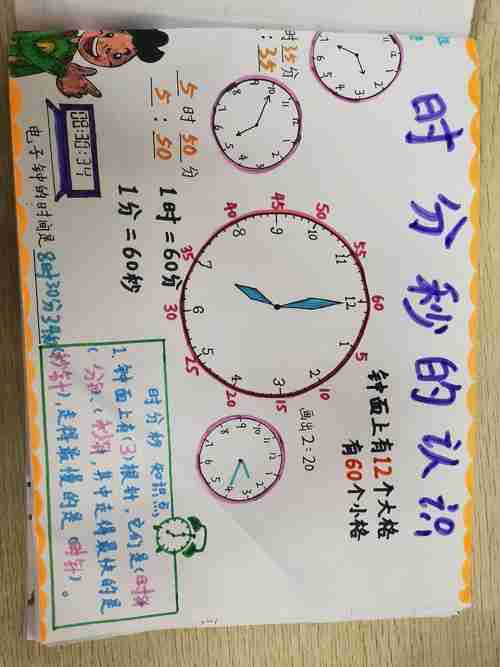 时分秒的认识
时35分
:35
5时50分
5:50
1时=60分
1分=60秒
08:30:34
电子钟的时间是8时30分34秒
60
5
10
15
20
25
30
35
40
45
50
55
12
1
2
3
4
5
6
7
8
9
10
11
钟面上有12个大格
有60个小格
画出2:20
时分秒 知识点
1. 钟面上有(3)根针,它们是(时针
(分针)(秒针),其中走得最快的是
(秒针),走得最慢的是(时针)。